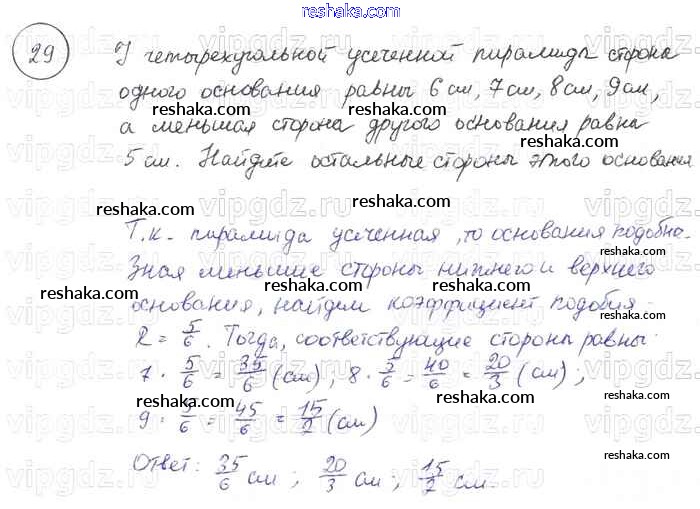 reshaka.com
29 У четырехугольной усеченной пирамиды сторона
одного основания равны 6 см, 7 см, 8 см, 9 см,
reshaka.com reshaka.com
а меньшая сторона другого основания равна
5 см. Найдите остальные стороны этого основания
reshaka.com
reshaka.com
Т.к. пирамида усеченная, то основания подобны.
reshaka.com
Зная меньшие стороны нижнего и верхнего
reshaka.com reshaka.com
основания, найдем коэффициент подобия -
k = 5/6. Тогда, соответствующие стороны равны:
reshaka.com
7 · 5/6 = 35/6 (см); 8 · 5/6 = 40/6 = 20/3 (см);
reshaka.com
9 · 5/6 = 45/6 = 15/2 (см)
reshaka.com
Ответ: 35/6 см; 20/3 см; 15/2 см.
reshaka.com
vipgdz.ru